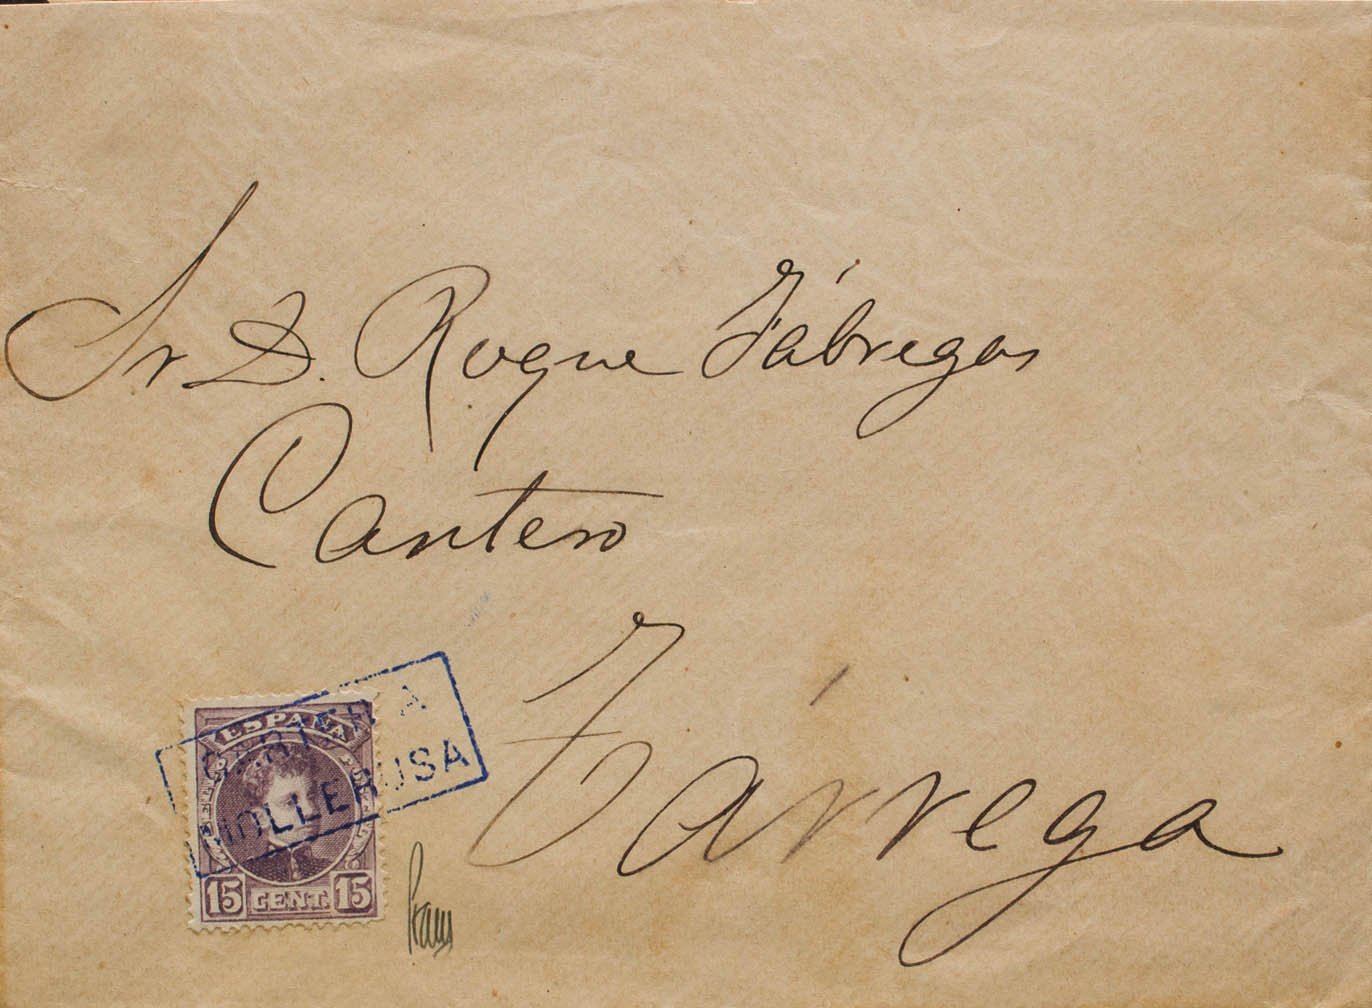 Sr D. Roque Fábregas
Cantero
Tárrega
CARTERIA
MOLLERUSA
ESPAÑA
15 CENT. 15